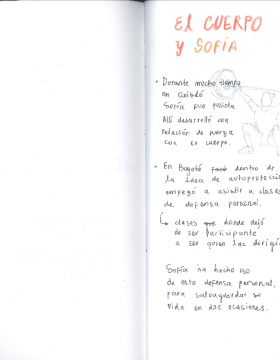 EL CUERPO
Y SOFÍA.
• Durante mucho tiempo
en Quibdó
Sofía fue pesista
Allí desarrolló una
relación de fuerza
con el cuerpo.
• En Bogotá pasó dentro de
la idea de autoprotecció
empezó a asistir a clases
de defensa personal.
↳ clases que donde dejó
de ser participante
a ser quien las dirigí
Sofía ha hecho uso
de esta defensa personal,
para salvaguardar su
vida en dos ocasiones.